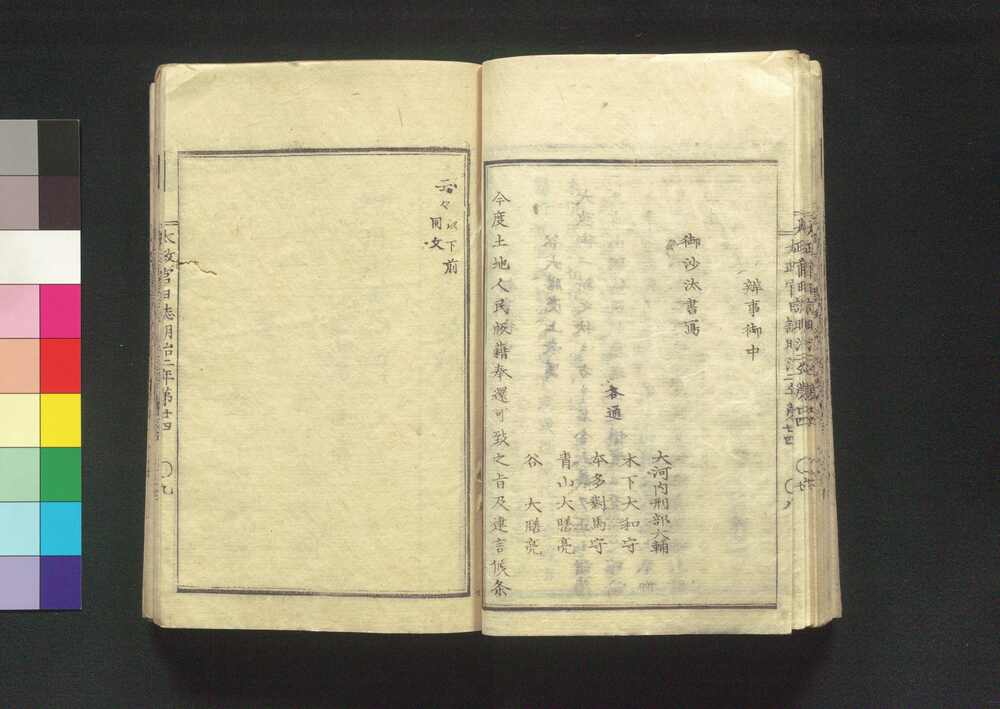 辨事御中
御沙汰書寫
各通
大河内刑部大輔
木下大和守
本多對馬守
青山大膳亮
谷　大膳亮
今度土地人民版籍奉還可致之旨及建言候条
云々以下前
同文
太政官日誌明治二年第廿四
〇九